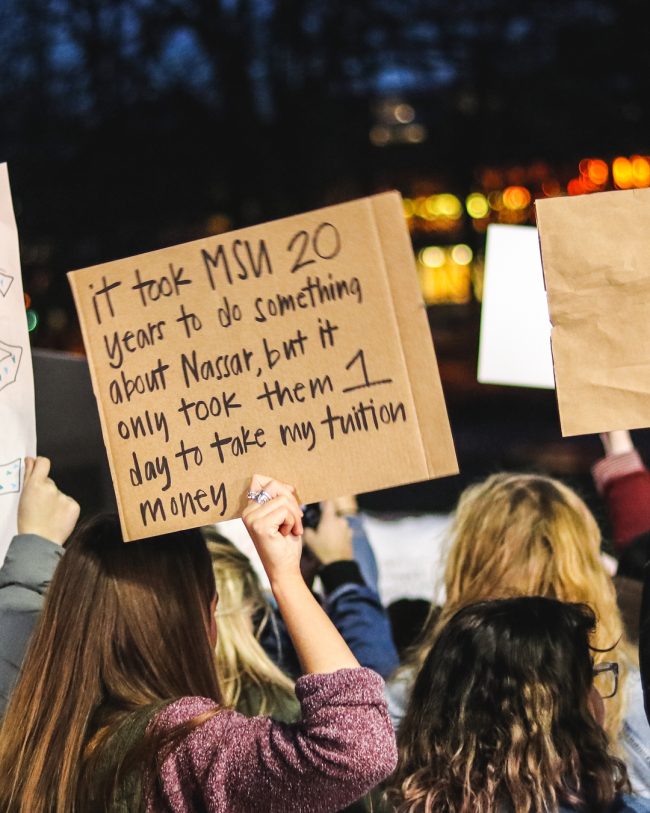 it took MSU 20
years to do something
about Nassar, but it
only took them 1
day to take my tuition
money